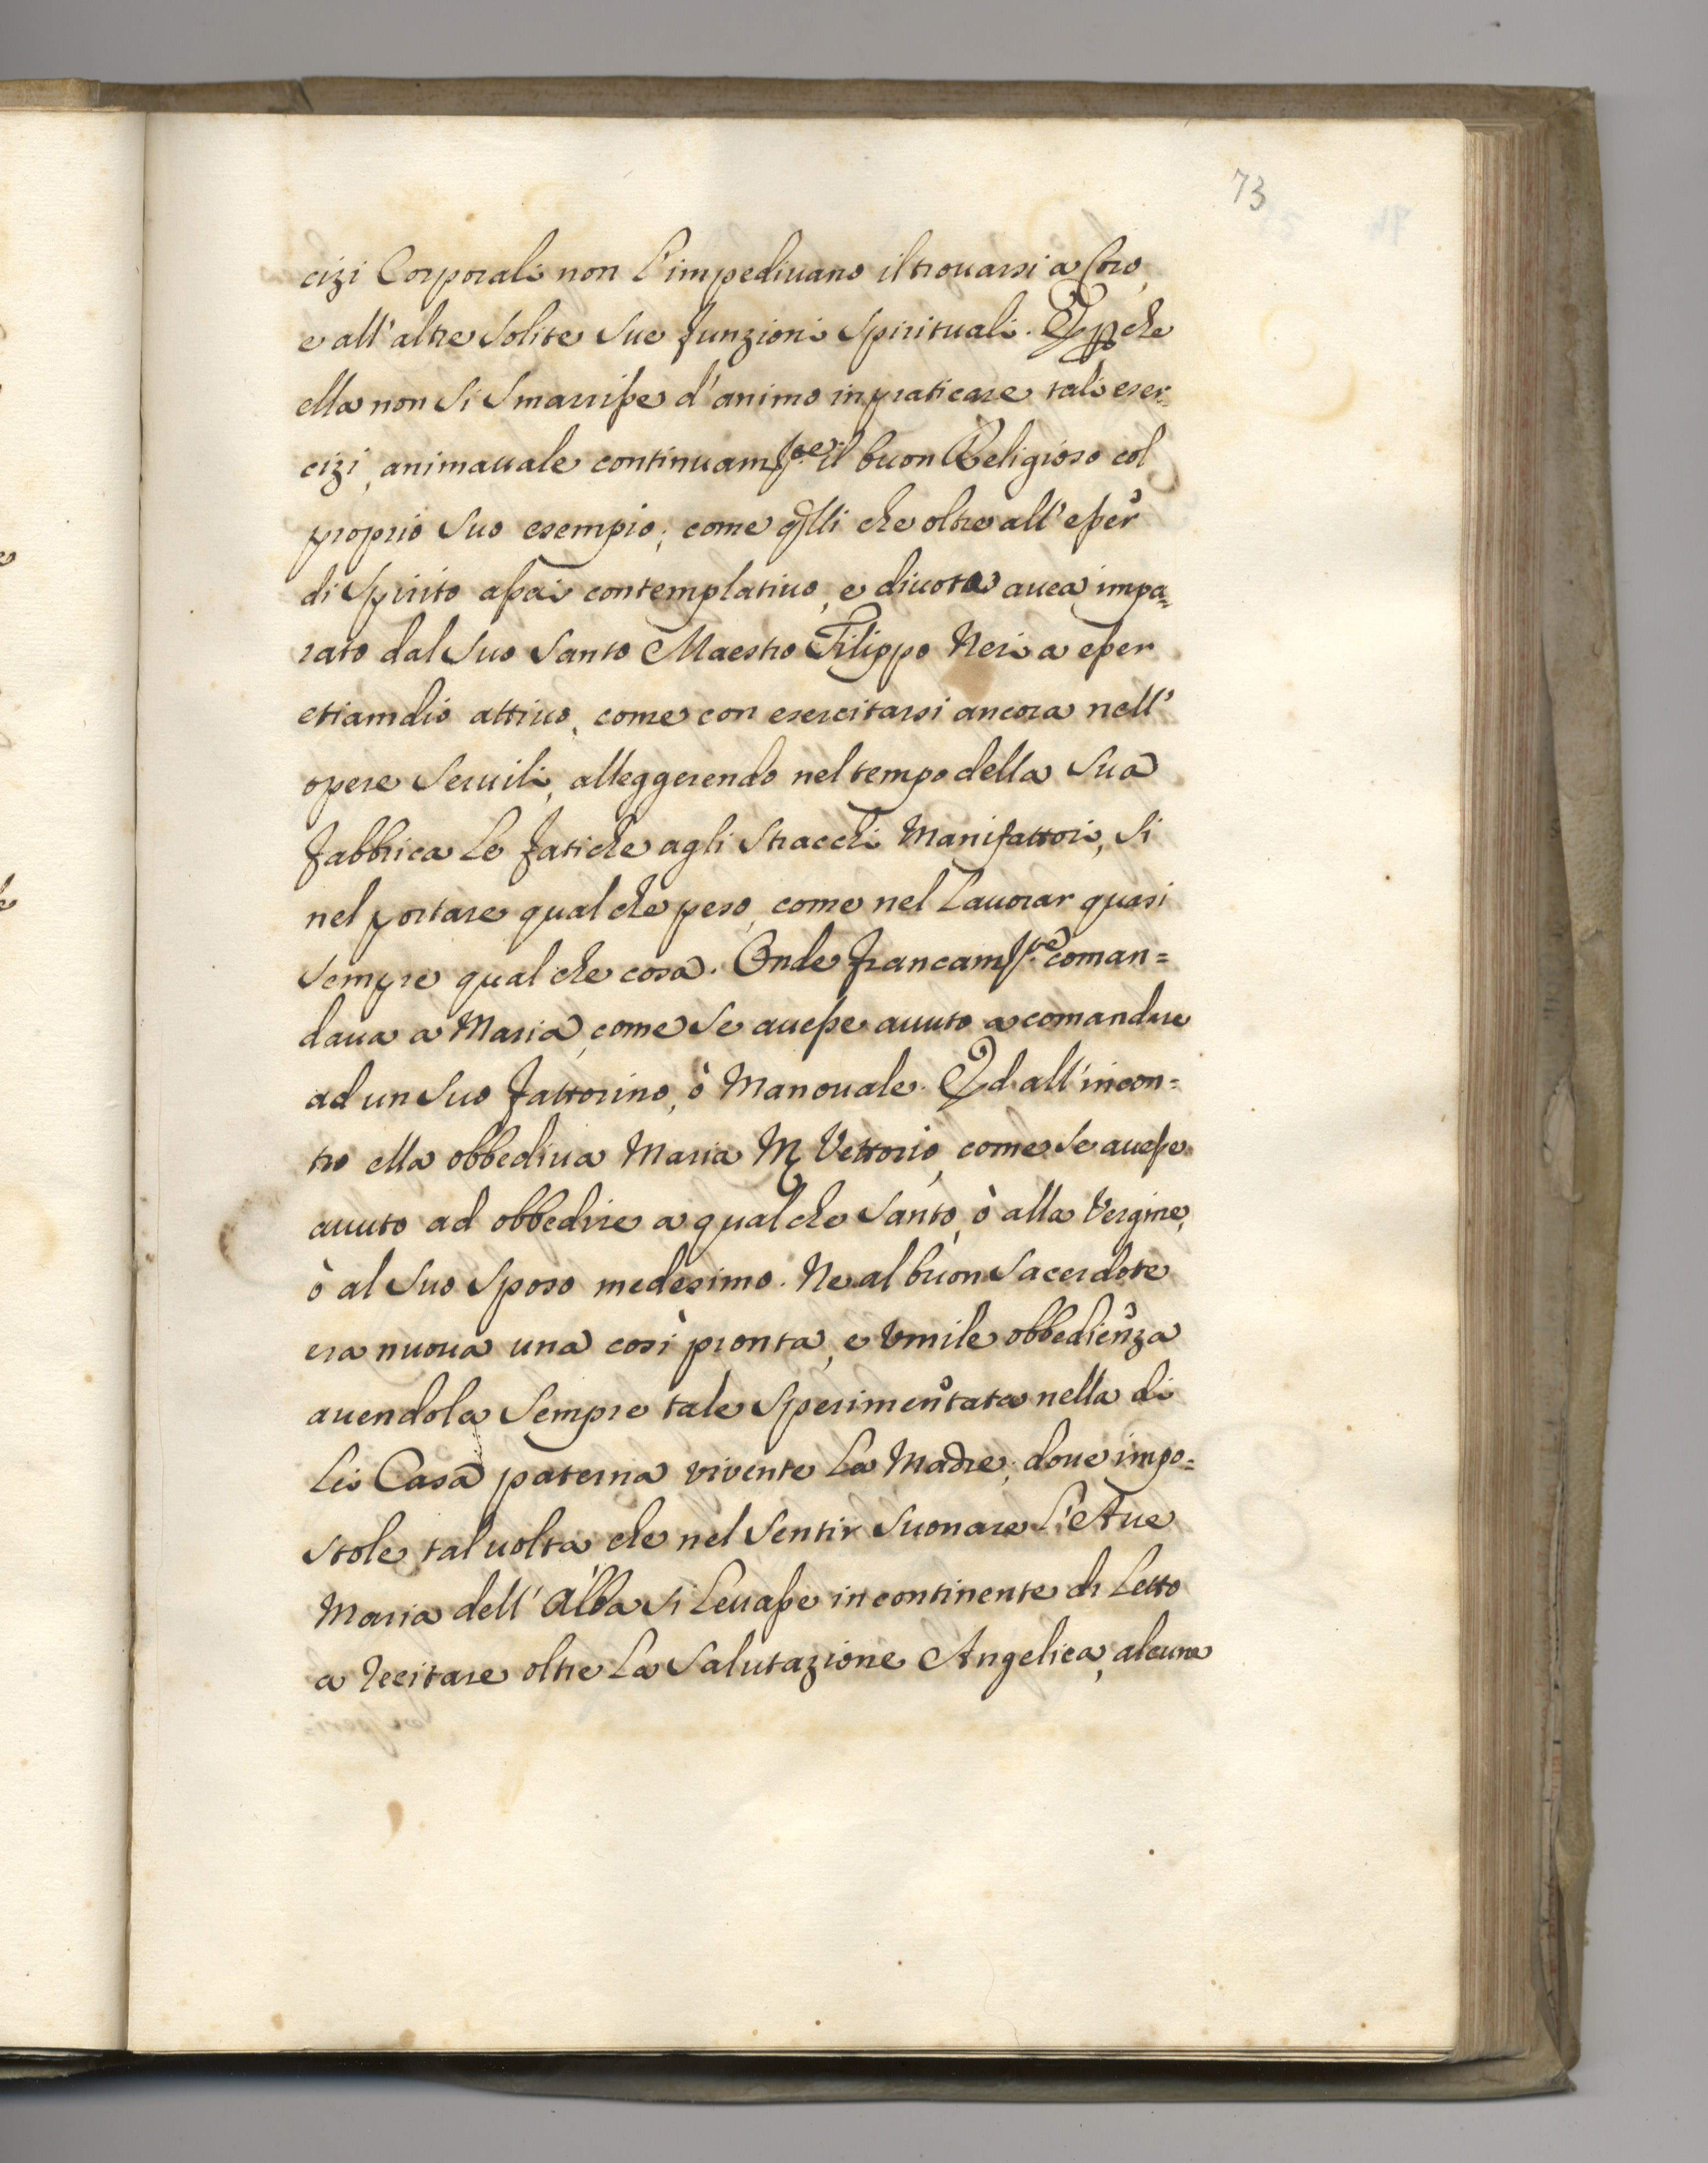 73
cizi Corporali non l'impediuano il trouarsi a Coro,
e all'altre solite sue funzioni spirituali. E pche
ella non si smarrisse d'animo in praticare tali eser=
cizi, animauale continuamte il buon Religioso col
proprio suo esempio; come qlli che oltre all'esser
di spirito assai contemplatiuo, e diuoto auea impa=
rato dal suo santo Maestro Filippo Neri a esser
etiamdio attiuo, come con esercitarsi ancora nell'
opere seruili, alleggerendo nel tempo della sua
fabbrica le fatiche agli stracchi Manifattori, si
nel portare qual che peso, come nel lauorar quasi
sempre qual che cosa. Onde francamte coman=
daua a Maria, come se auesse auuto a comandare
ad un suo fattorino, ò Manouale. Ed all'incon=
tro ella obbediua Maria M Vettorio, come se auesse
auuto ad obbedire a qualche santo, ò alla Vergine,
ò al suo sposo medesimo. Ne al buon sacerdote
era nuoua una così pronta, e vmile obbedienza
auendola sempre tale sperimentata nella di
lei Casa paterna vivente la Madre; doue impo=
stole tal uolta che nel sentir suonare l'Aue
Maria dell'Alba si leuasse incontinente di letto
a recitare oltre la salutazione Angelica, alcune